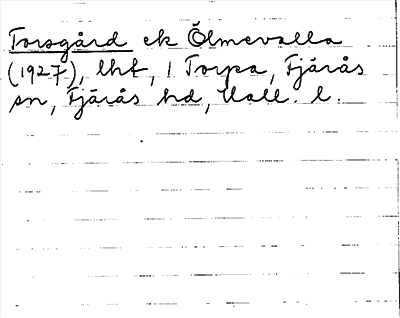 Torsgård ek Ölmevalla
(1927), lht, 1 Torpa, Fjärås
sn, Fjärås hd, Hall. l.